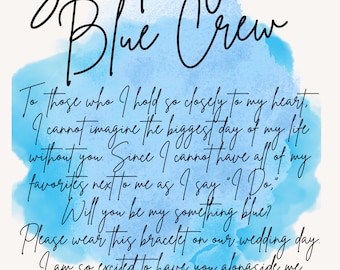 Blue Crew
To those who I hold so closely to my heart,
I cannot imagine the biggest day of my life
without you. Since I cannot have all of my
favorites next to me as I say "I Do,
Will you be my something blue?
Please wear this bracelet on our wedding day.
I am so excited to have you alongside me